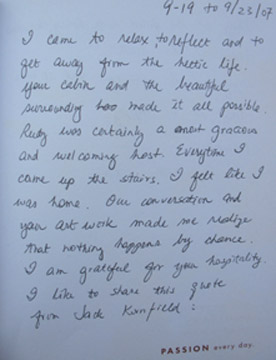 9-19 to 9/23/07
I came to relax, to reflect and to
get away from the hectic life.
your cabin and the beautiful
surrounding has made it all possible.
Rudy was certainly a most gracious
and welcoming host. Everytime I
came up the stairs, I felt like I
was home. Our conversation and
your art work made me realize
that nothing happens by chance.
I am grateful for your hospitality.
I like to share this quote
from Jack Kornfield :
PASSION every day.